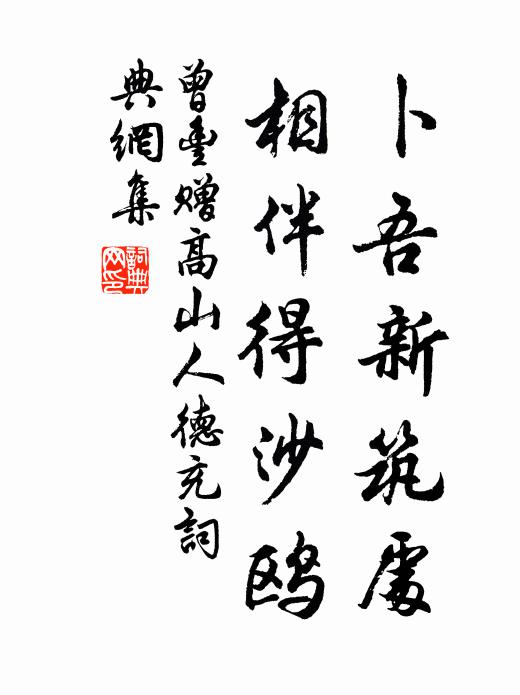 卜吾新筑處
相伴得沙鸥
曾豐赠高山人德充詞
典網集
詞典
网印